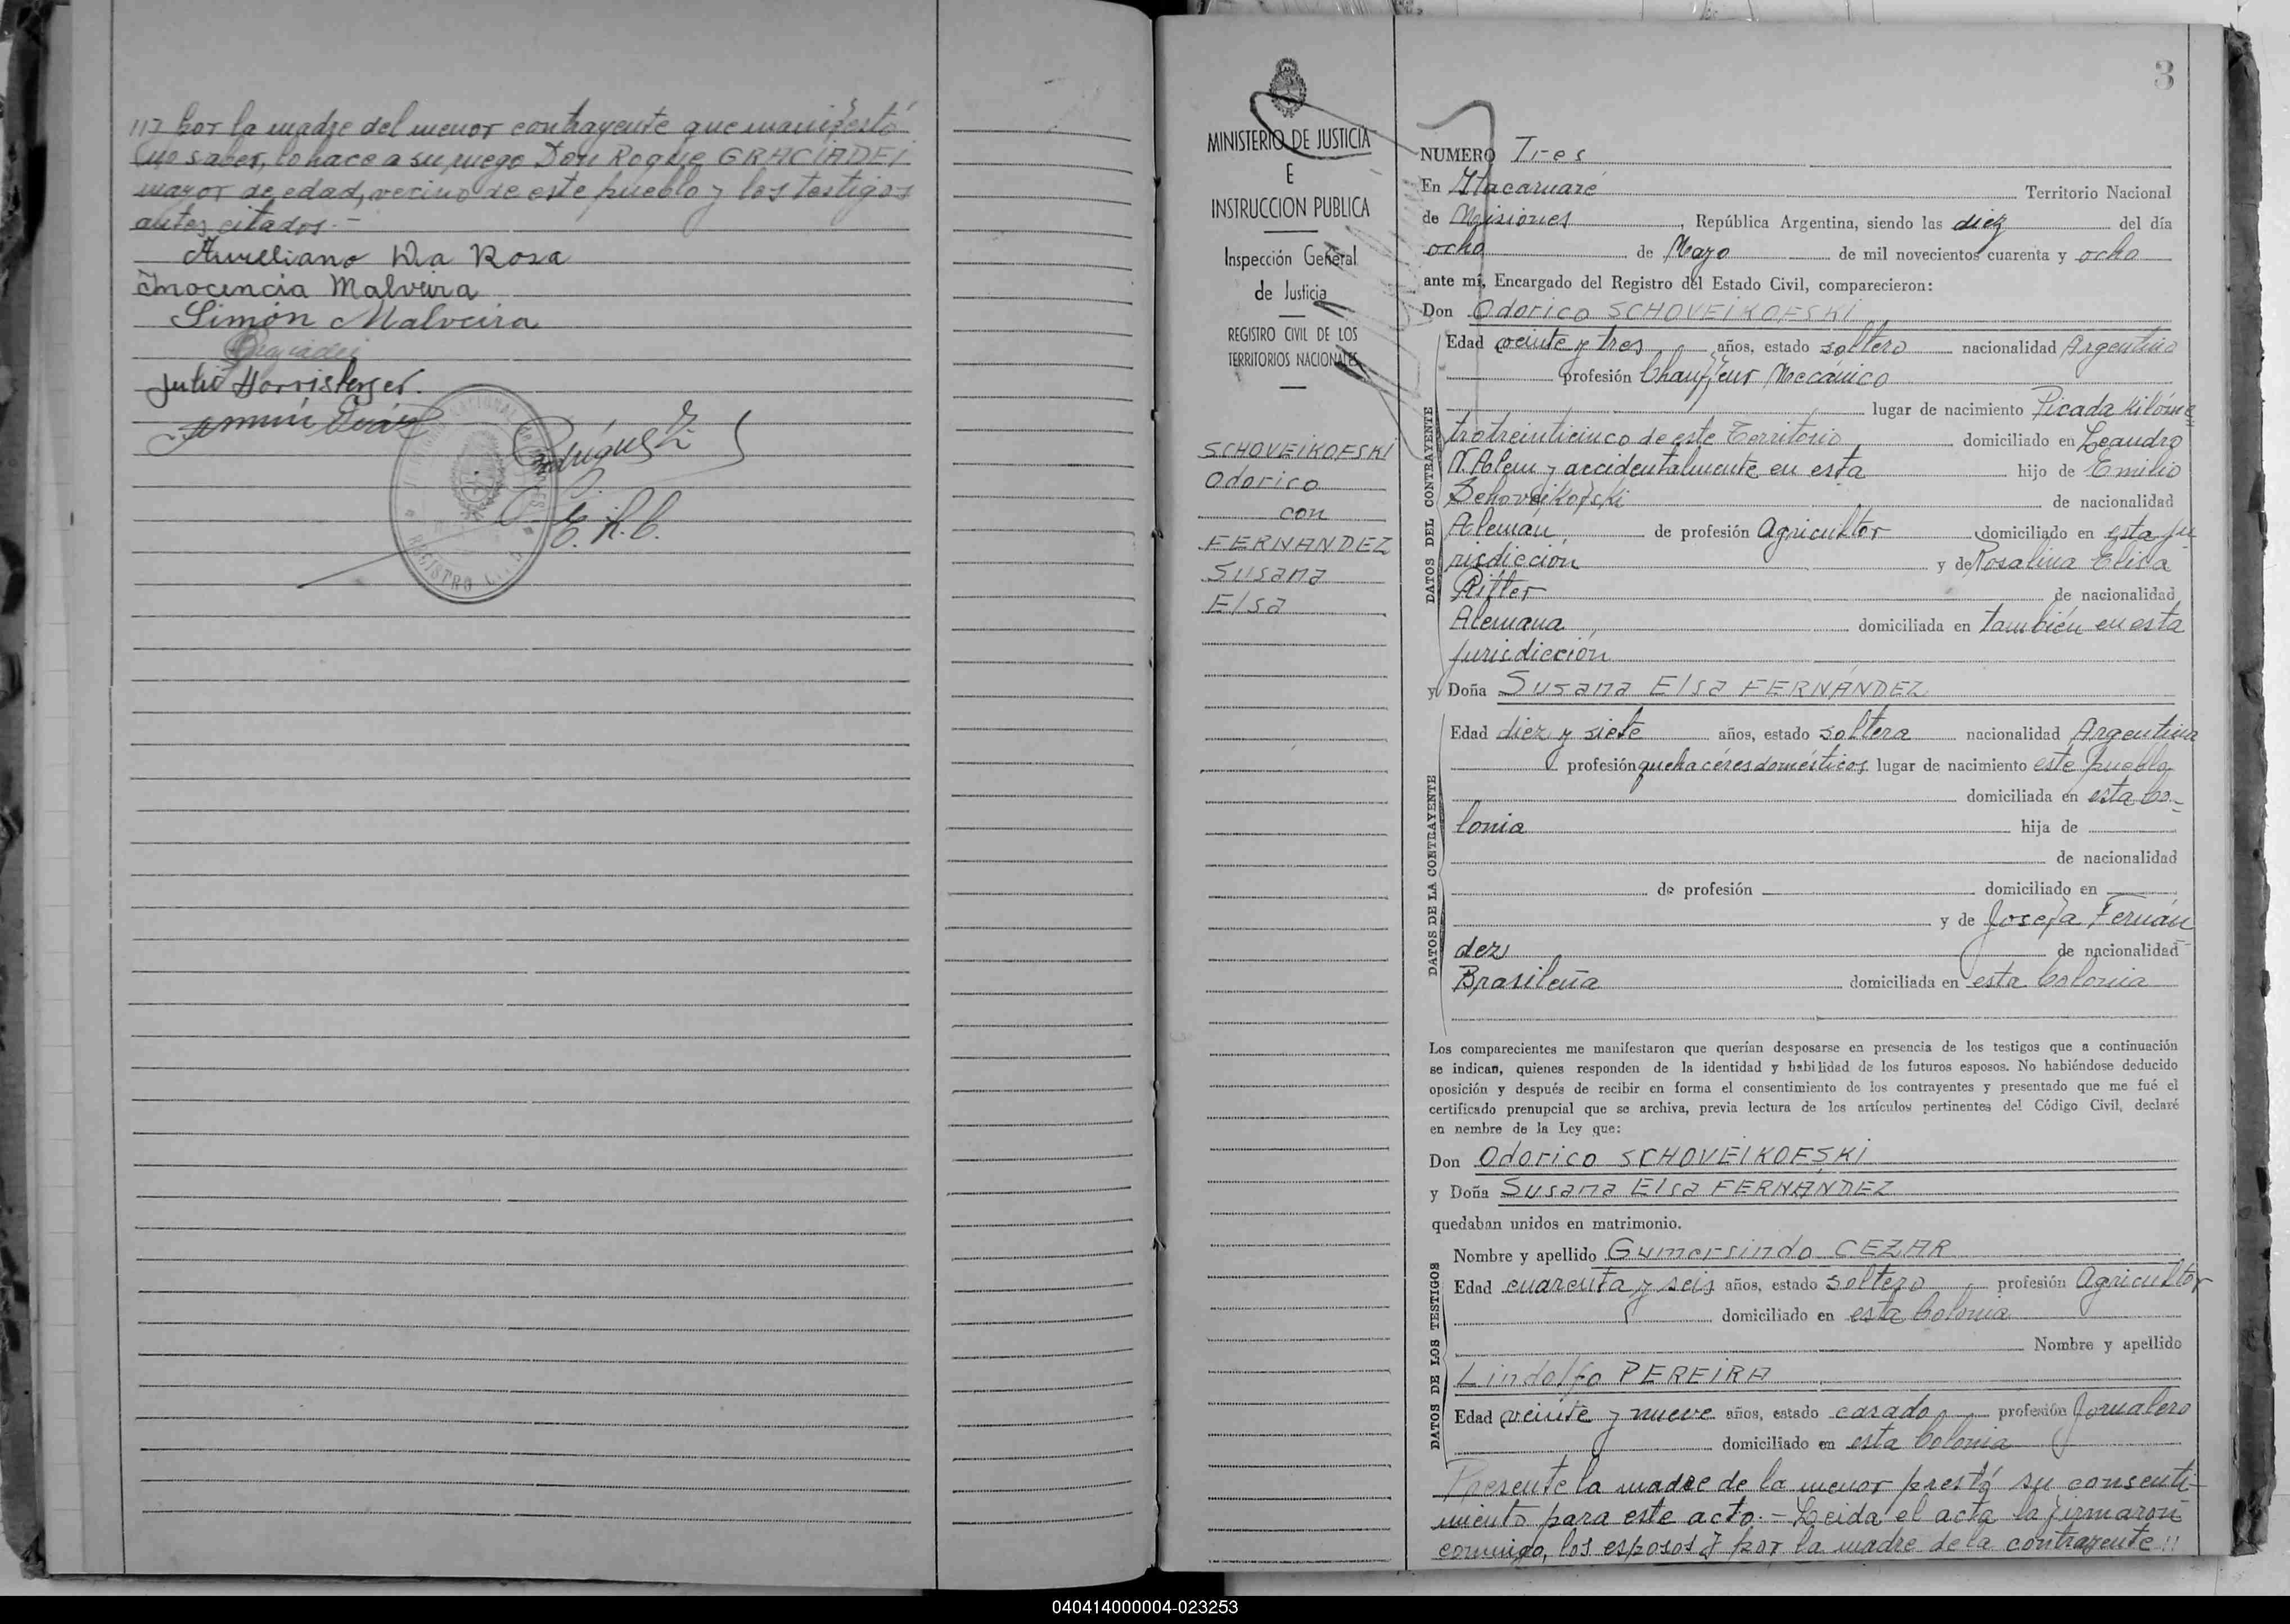 /// por la madre del menor contrayente que manifestó
no saber, lo hace a su ruego Don Roque GRACIADEI
mayor de edad, vecino de este pueblo y los testigos
antes citados.-
Aureliano Da Rosa
Inocencia Malveira
Simón Malveira
Graciadei
Julio Horrisberger.
E. R. C.
REGISTRO CIVIL
3
MINISTERIO DE JUSTICIA
E
INSTRUCCION PUBLICA
Inspección General
de Justicia
REGISTRO CIVIL DE LOS
TERRITORIOS NACIONALES
SCHOVEIKOFSKI
Odorico
con
FERNANDEZ
Susana
Elsa
NUMERO Tres
En Itacaruaré Territorio Nacional
de Misiones, República Argentina, siendo las diez del día
ocho de Mayo de mil novecientos cuarenta y ocho
ante mí, Encargado del Registro del Estado Civil, comparecieron:
Don Odorico SCHOVEIKOFSKI
DATOS DEL CONTRAYENTE
Edad veinte y tres años, estado soltero nacionalidad Argentino
profesión Chauffeur Mecánico
lugar de nacimiento Picada Kilóme
tro treinticinco de este Territorio domiciliado en Leandro
N. Alem y accidentalmente en esta hijo de Emilio
Schoveikofski de nacionalidad
Alemán, de profesión Agricultor domiciliado en esta ju
risdicción y de Rosalina Elisa
Ritter de nacionalidad
Alemana domiciliada en también en esta
jurisdicción
y Doña Susana Elsa FERNÁNDEZ
DATOS DE LA CONTRAYENTE
Edad diez y siete años, estado soltera nacionalidad Argentina
profesión quehacéres domésticos lugar de nacimiento este pueblo
domiciliada en esta Co-
lonia hija de
de nacionalidad
de profesión domiciliado en
y de Josefa Fernán
dez de nacionalidad
Brasileña domiciliada en esta Colonia
Los comparecientes me manifestaron que querían desposarse en presencia de los testigos que a continuación
se indican, quienes responden de la identidad y habilidad de los futuros esposos. No habiéndose deducido
oposición y después de recibir en forma el consentimiento de los contrayentes y presentado que me fué el
certificado prenupcial que se archiva, previa lectura de los artículos pertinentes del Código Civil, declaré
en nembre de la Ley que:
Don Odorico SCHOVEIKOFSKI
y Doña Susana Elsa FERNANDEZ
quedaban unidos en matrimonio.
DATOS DE LOS TESTIGOS
Nombre y apellido Gumersindo CEZAR
Edad cuarenta y seis años, estado soltero profesión Agricultor
domiciliado en esta Colonia
Nombre y apellido
Lindolfo PEREIRA
Edad veinte y nueve años, estado casado profesión Jornalero
domiciliado en esta Colonia
Presente la madre de la menor prestó su consenti-
miento para este acto.- Leida el acta la firmaron
conmigo, los esposos y por la madre de la contrayente //
040414000004-023253